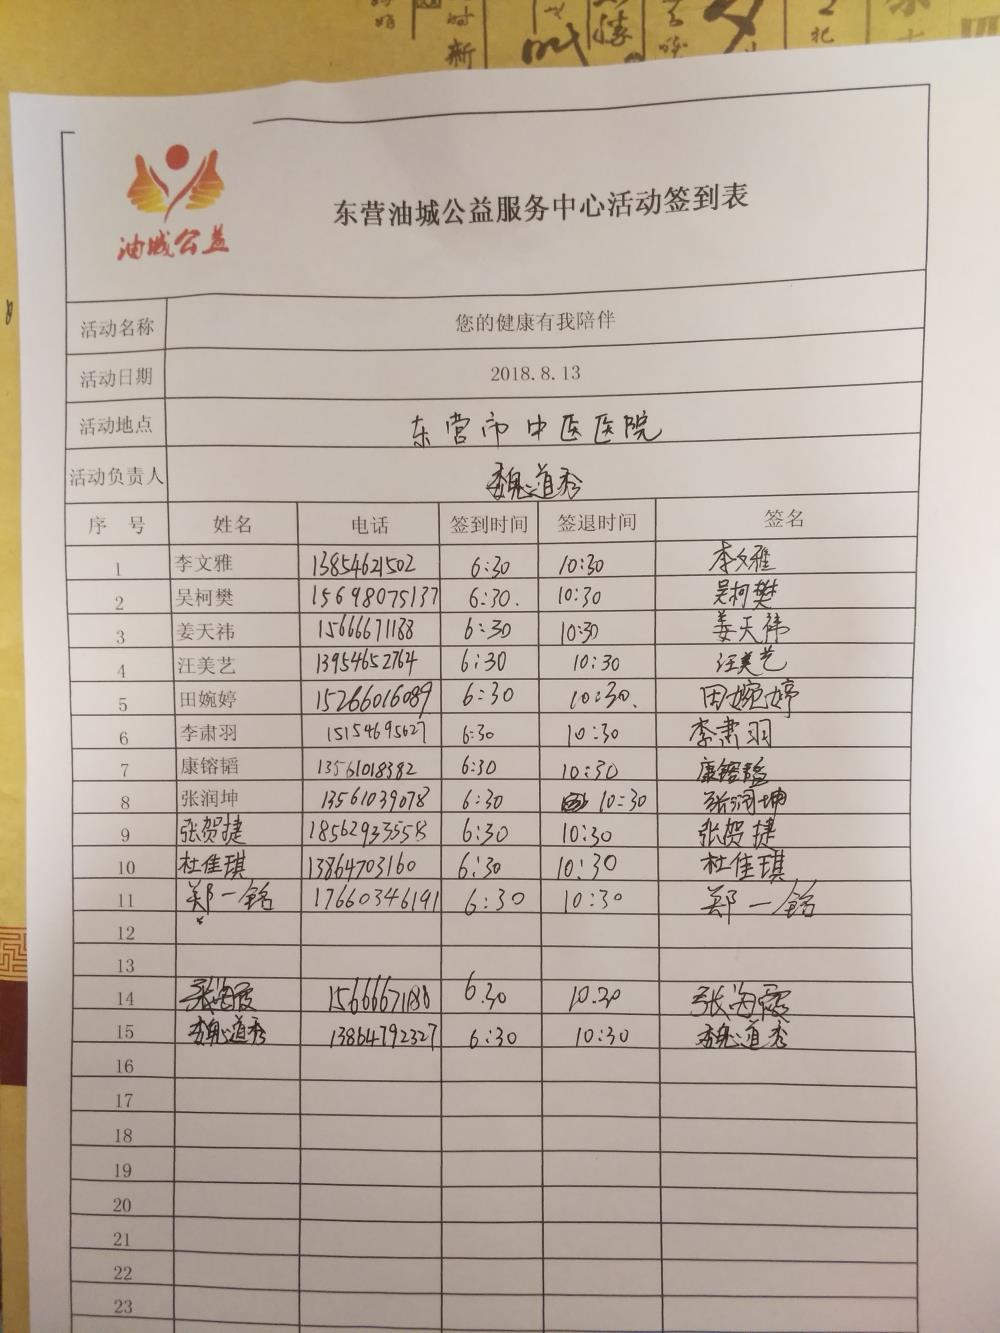 油城公益
东营油城公益服务中心活动签到表
活动名称 您的健康有我陪伴
活动日期 2018.8.13
活动地点 东营市中医医院
活动负责人 魏道秀
序 号 姓名 电话 签到时间 签退时间 签名
1 李文雅 13854621502 6:30 10:30 李文雅
2 吴柯樊 15698075137 6:30. 10:30 吴柯樊
3 姜天祎 15666671188 6:30 10:30 姜天祎
4 汪美艺 13954652764 6:30 10:30 汪美艺
5 田婉婷 15266016089 6:30 10:30. 田婉婷
6 李肃羽 15154695627 6:30 10:30 李肃羽
7 康镕韬 13561018382 6:30 10:30 康镕韬
8 张润坤 13561039078 6:30 10:30 张润坤
9 张贺捷 18562933558 6:30 10:30 张贺捷
10 杜佳琪 13864703160 6:30 10:30 杜佳琪
11 郑一铭 17660346191 6:30 10:30 郑一铭
12
13
14 张海霞 15666671188 6.30 10.30 张海霞
15 魏道秀 13864792327 6:30 10:30 魏道秀
16
17
18
19
20
21
22
23